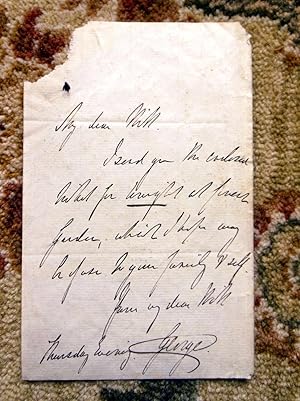 My dear Will.
I send you the enclosed
ticket for tonight at Covent
Garden, which I hope may
be of use to your family & self.
Yours my dear Will
Thursday Evening George.